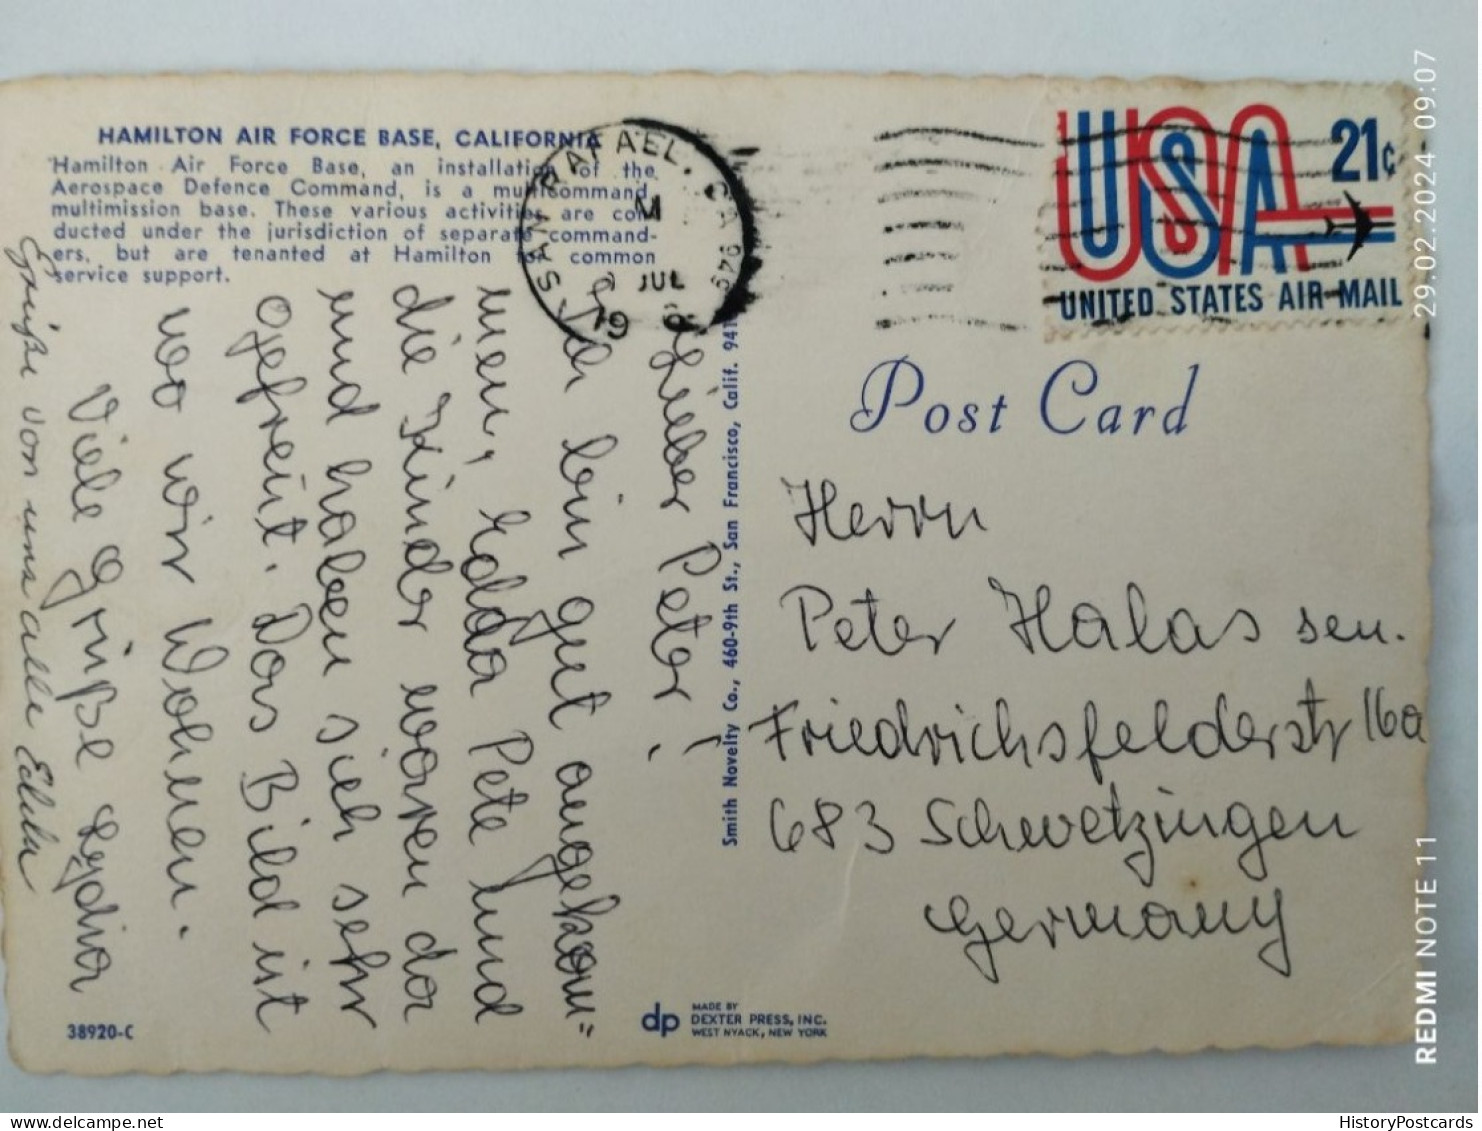 HAMILTON AIR FORCE BASE, CALIFORNIA
Hamilton Air Force Base, an installation of the
Aerospace Defence Command, is a multicommand,
multimission base. These various activities are con-
ducted under the jurisdiction of separate command-
ers, but are tenanted at Hamilton for common
service support.
SAN RAFAEL, CA 949
M
JUL
USA 21c
UNITED STATES AIR MAIL
Post Card
Lieber Peter!
Ich bin gut angekom=
men, Edda Pete und
die Kinder waren da
und haben sich sehr
gefreut. Das Bild ist
wo wir Wohnen.
Viele Grüße Lydia
Grüße von uns alle Edda
Herrn
Peter Halas sen.
Friedrichsfelderstr 16a
683 Schwetzingen
Germany
Smith Novelty Co., 460-9th St., San Francisco, Calif. 941
38920-C
dp
MADE BY
DEXTER PRESS, INC.
WEST NYACK, NEW YORK
29.02.2024 09:07
REDMI NOTE 11
delcampe.net
HistoryPostcards